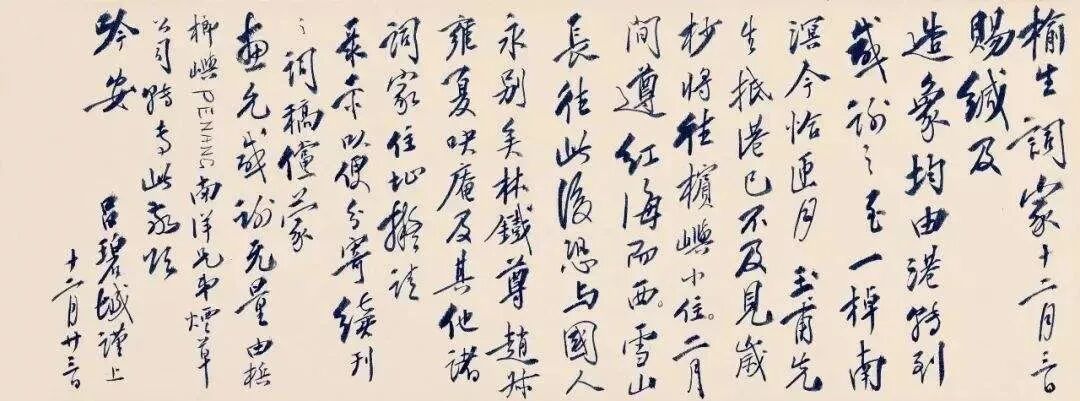 榆生詞家十二月三日
賜緘及
造象均由港轉到
感謝之至一棹南
溟今恰匝月玉甫先
生抵港已不及見歲
杪將往檳嶼小住。二月
間遵紅海而西。雪山
長往此後恐与國人
永别矣林鐵尊趙叔
雍夏吷庵及其他諸
詞家住址擬請
彔示以便分寄續刊
之詞稿儻蒙
惠允感謝無量由檳
榔嶼PENANG南洋兄弟煙草
公司轉專此敬頌
吟安
呂碧城謹上
十二月廿三日